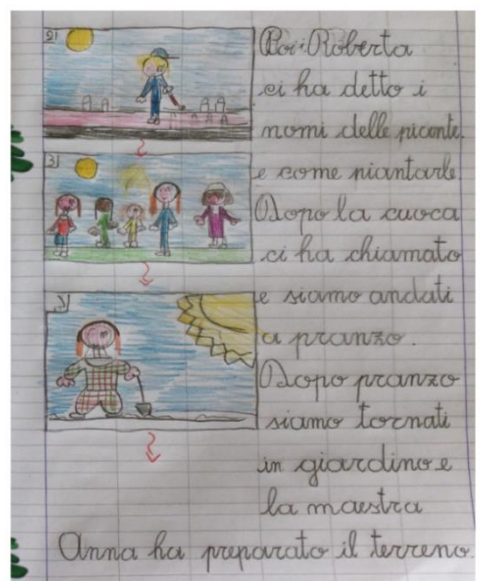 2)
Poi Roberta
ci ha detto i
nomi delle picente.
3)
e come piantarle
Dopo la cuoca
ci ha chiamato
e siamo andati
a pranzo.
Dopo pranzo
siamo tornati
in giardino e
la maestra
Anna ha preparato il terreno.